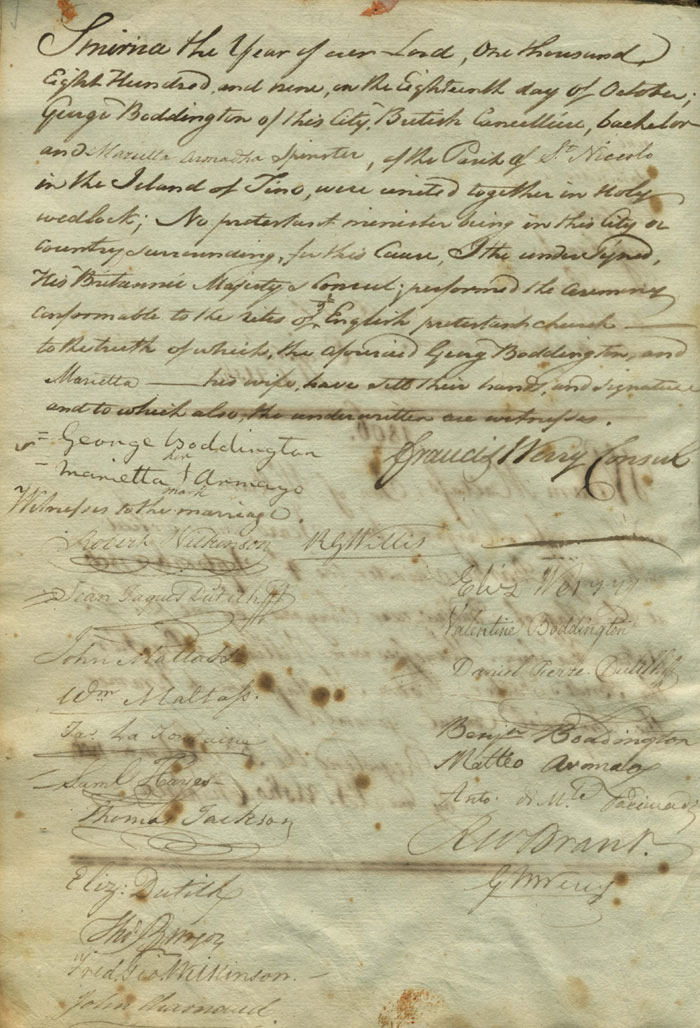 Smirna the Year of our Lord, One thousand
Eight Hundred, and nine, on the Eighteenth day of October;
George Boddington of this City, British Cancellier, bachelor
and Marietta Spinster, of the Parish of St. Niccolo
in the Island of Tino, were united together in Holy
wedlock; No protestant minister being in this City or
Country surrounding, for this Cause, I the undersigned,
His Britannic Majestys Consul; performed the ceremony
conformable to the rites of ye English protestant church
to the truth of which, the aforesaid Georg Boddington, and
Marietta his wife, have sett their hands, and signature
and to which also, the underwritten are witnesses.
= George Boddington
Francis Werry Consul
- Marietta her mark Armao
Witnesses to the marriage.
Robert Wilkinson
R G Willis
Eliz Werry
Jean Jaques Dutilh
Valentine Boddington
John Maltass
Daniel Pierre Dutilh
Wm Maltass.
Jas. La Fontaine
Benjn Boddington
Saml Hayes
Matteo Armao
Thomas Jackson
Anto. di
R W Brant.
Eliz: Dutilh
G W Werry
Fred. Geo Wilkinson.
John Barnard